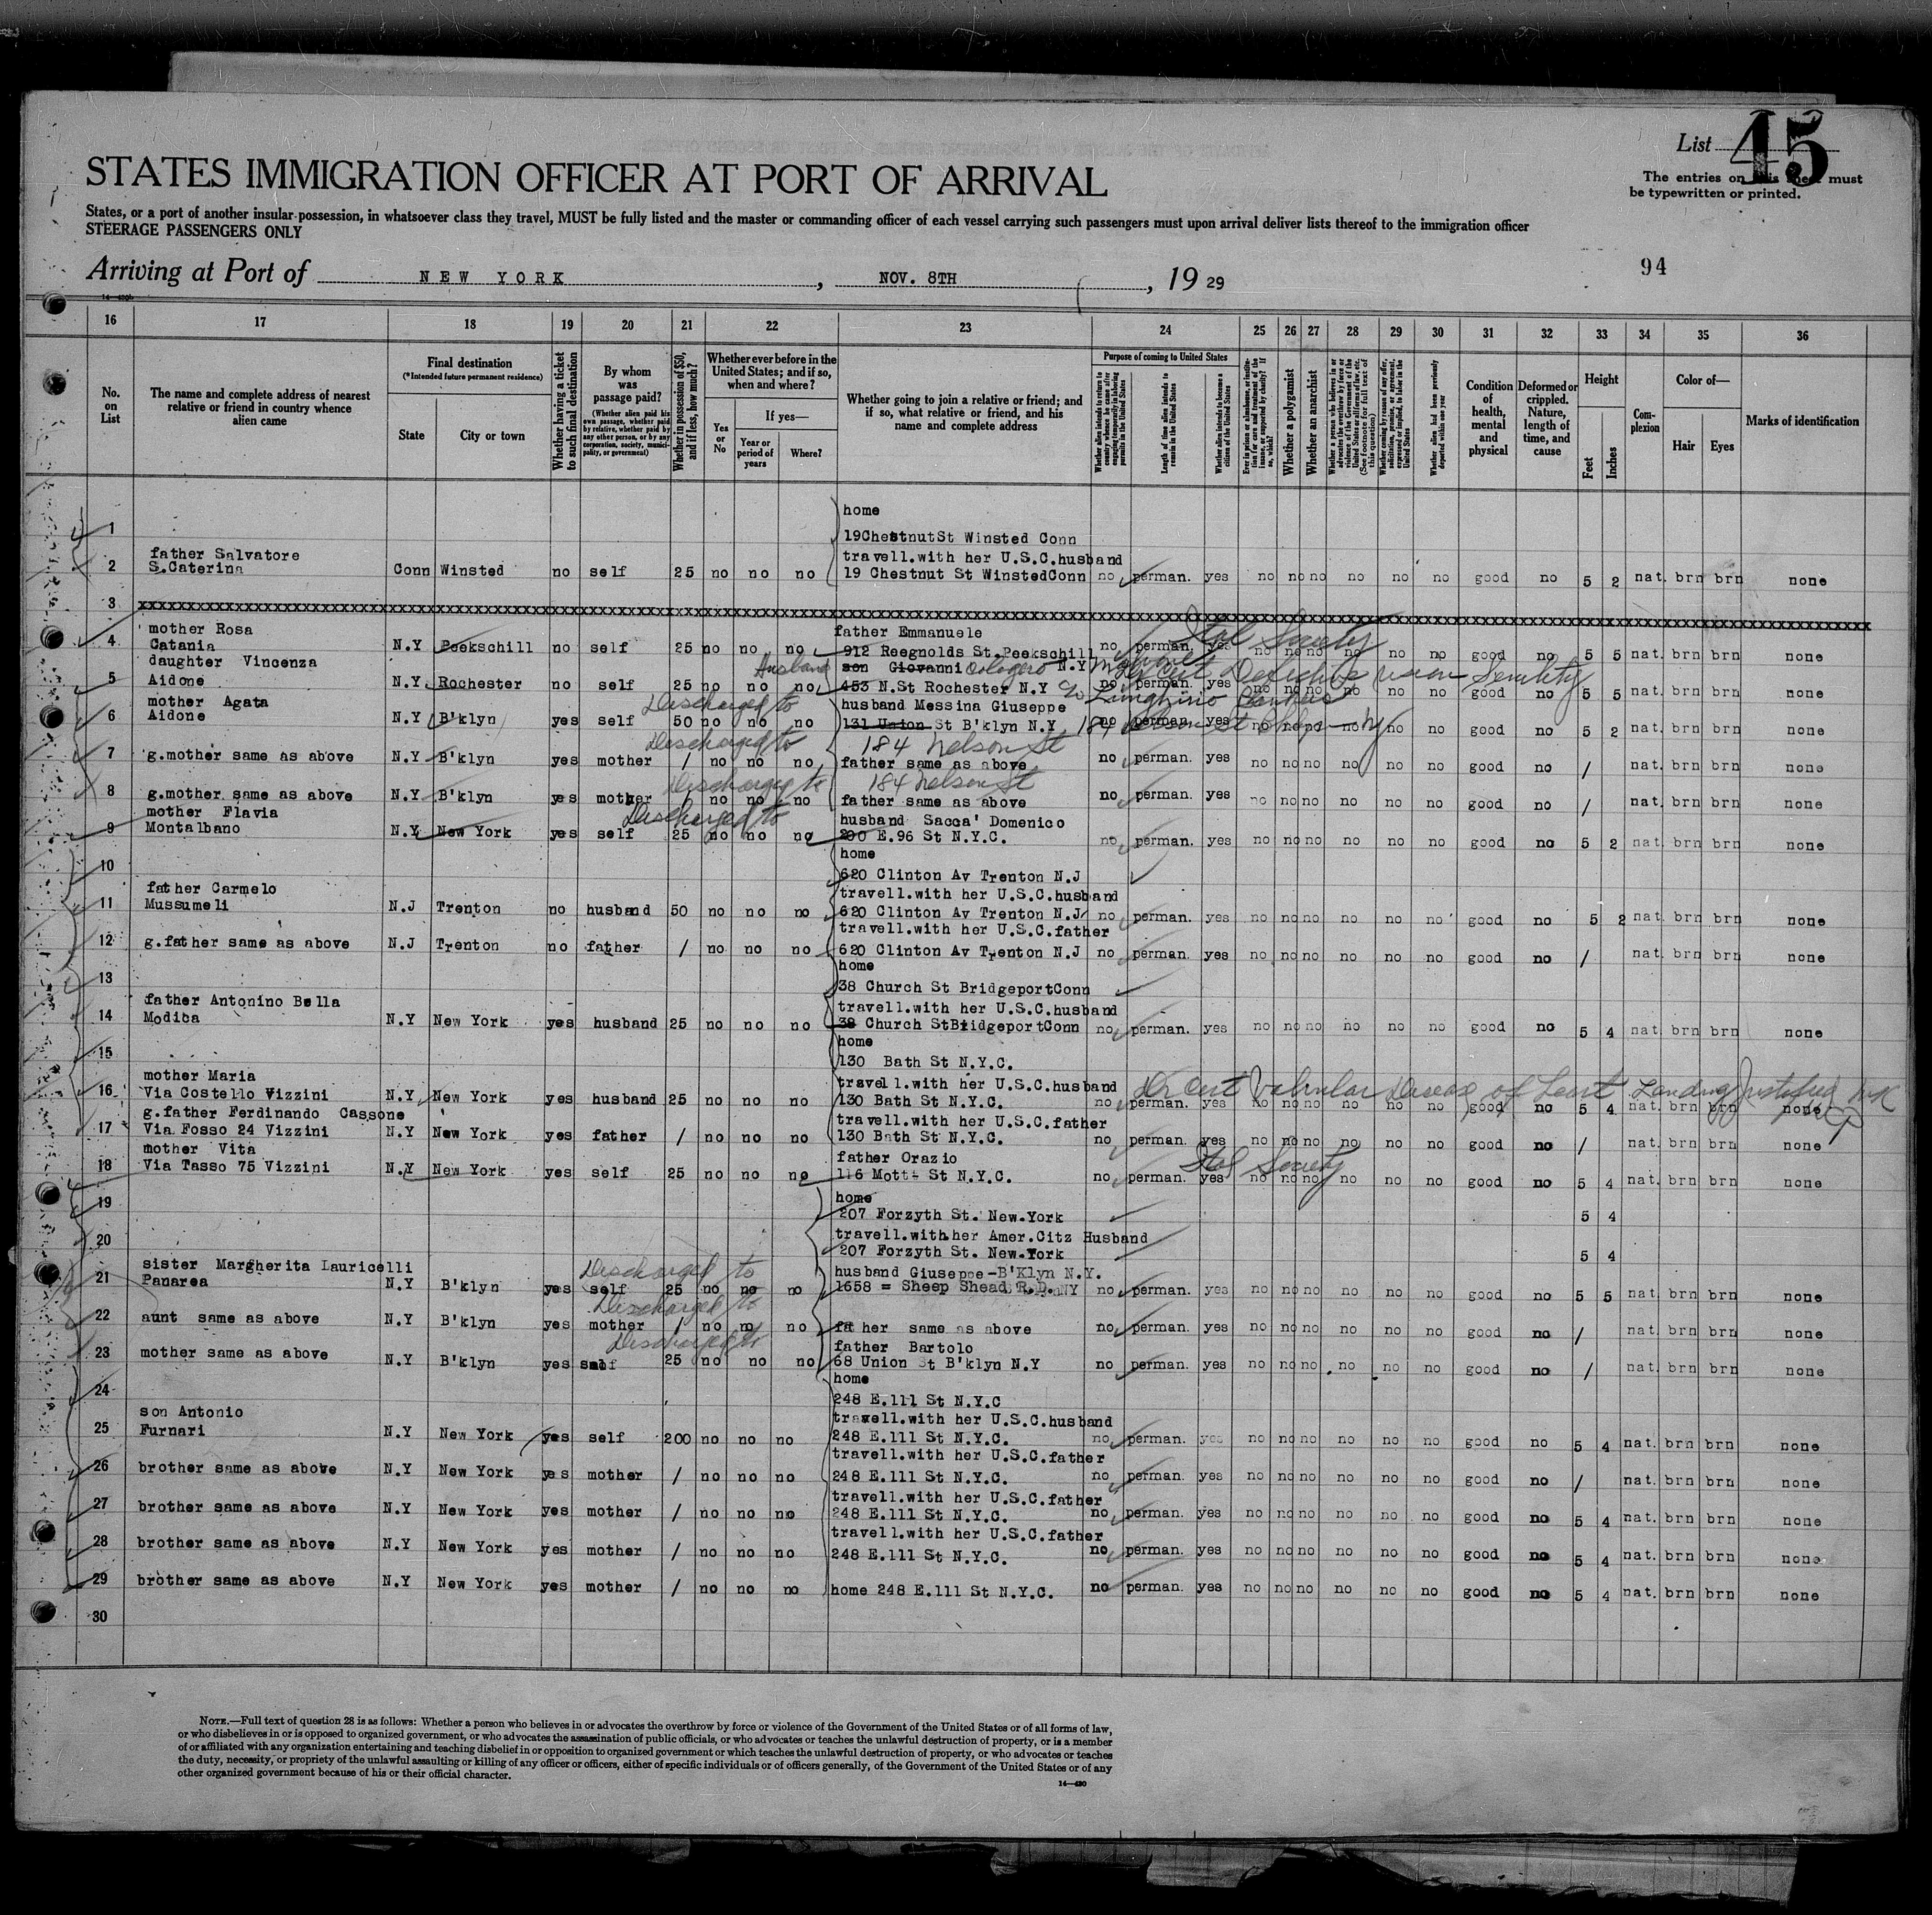 List 45
The entries on this sheet must
be typewritten or printed.
STATES IMMIGRATION OFFICER AT PORT OF ARRIVAL
States, or a port of another insular possession, in whatsoever class they travel, MUST be fully listed and the master or commanding officer of each vessel carrying such passengers must upon arrival deliver lists thereof to the immigration officer
STEERAGE PASSENGERS ONLY
94
Arriving at Port of NEW YORK, NOV. 8TH, 19 29
16 17 18 19 20 21 22 23 24 25 26 27 28 29 30 31 32 33 34 35 36
No. on List
The name and complete address of nearest relative or friend in country whence alien came
Final destination
(*Intended future permanent residence)
State
City or town
Whether having a ticket to such final destination
By whom was passage paid?
(Whether alien paid his own passage, whether paid by relative, whether paid by any other person, or by any corporation, society, municipality, or government)
Whether in possession of $50, and if less, how much?
Whether ever before in the United States; and if so, when and where?
Yes or No
If yes—
Year or period of years
Where?
Whether going to join a relative or friend; and if so, what relative or friend, and his name and complete address
Purpose of coming to United States
Length of time alien intends to remain in the United States
Whether alien intends to become a citizen of the United States
Whether a polygamist
Whether an anarchist
Whether alien had been previously deported within one year
Condition of health, mental and physical
Deformed or crippled. Nature, length of time, and cause
Height
Feet
Inches
Complexion
Color of—
Hair
Eyes
Marks of identification
1 home
19ChestnutSt Winsted Conn
father Salvatore travell.with her U.S.C.husband
2 S.Caterina Conn Winsted no self 25 no no no 19 Chestnut St WinstedConn no perman. yes no no no no no no good no 5 2 nat. brn brn none
3 xxxxxxxxxxxxxxxxxxxxxxxxxxxxxxxxxxxxxxxxxxxxxxxx
mother Rosa father Emmanuele Ital Society
4 Catania N.Y Peekschill no self 25 no no no 912 Reegnolds St.Peekschill no perman. yes no no no no no no good no 5 5 nat. brn brn none
daughter Vincenza Husband son Giovanni Calogero N.Y
5 Aidone N.Y. Rochester no self 25 no no no 453 N.St Rochester N.Y no perman. yes no no no no no no good no 5 5 nat. brn brn none
Dr cert Defective vision Senility
mother Agata Discharged to husband Messina Giuseppe
6 Aidone N.Y B'klyn yes self 50 no no no 131 Union St B'klyn N.Y. no perman. yes no no no no no no good no 5 2 nat. brn brn none
Discharged to 184 Nelson St
7 g.mother same as above N.Y B'klyn yes mother / no no no father same as above no perman. yes no no no no no no good no / nat. brn brn none
Discharged to 184 Nelson St
8 g.mother same as above N.Y B'klyn yes mother / no no no father same as above no perman. yes no no no no no no good no / nat. brn brn none
mother Flavia Discharged to husband Sacca' Domenico
9 Montalbano N.Y New York yes self 25 no no no 200 E.96 St N.Y.C. no perman. yes no no no no no no good no 5 2 nat. brn brn none
10 home
620 Clinton Av Trenton N.J
father Carmelo travell.with her U.S.C.husband
11 Mussumeli N.J Trenton no husband 50 no no no 620 Clinton Av Trenton N.J no perman. yes no no no no no no good no 5 2 nat. brn brn none
travell.with her U.S.C.father
12 g.father same as above N.J Trenton no father / no no no 620 Clinton Av Trenton N.J no perman. yes no no no no no no good no / nat. brn brn none
13 home
38 Church St BridgeportConn
father Antonino Bella travell.with her U.S.C.husband
14 Modica N.Y New York yes husband 25 no no no 38 Church StBridgeportConn no perman. yes no no no no no no good no 5 4 nat. brn brn none
15 home
130 Bath St N.Y.C.
mother Maria travell.with her U.S.C.husband Dr cert Valvular Disease of Heart Landing Justified
16 Via Costello Vizzini N.Y. New York yes husband 25 no no no 130 Bath St N.Y.C. no perman. yes no no no no no no good no 5 4 nat. brn brn none
g.father Ferdinando Cassone travell.with her U.S.C.father
17 Via Fosso 24 Vizzini N.Y New York yes father / no no no 130 Bath St N.Y.C. no perman. yes no no no no no no good no / nat. brn brn none
mother Vita father Orazio Ital Society
18 Via Tasso 75 Vizzini N.Y New York yes self 25 no no no 116 Mott St N.Y.C. no perman. yes no no no no no no good no 5 4 nat. brn brn none
19 home
207 Forzyth St. New.York 5 4
20 travell.with.her Amer.Citz Husband
207 Forzyth St. New.York 5 4
sister Margherita Lauricelli Discharged to husband Giuseppe-B'Klyn N.Y.
21 Panarea N.Y B'klyn yes self 25 no no no 1658 = Sheep Shead R.D. NY no perman. yes no no no no no no good no 5 5 nat. brn brn none
Discharged to
22 aunt same as above N.Y B'klyn yes mother / no no no father same as above no perman. yes no no no no no no good no / nat. brn brn none
Discharged to father Bartolo
23 mother same as above N.Y B'klyn yes self 25 no no no 68 Union St B'klyn N.Y no perman. yes no no no no no no good no / nat. brn brn none
24 home
248 E.111 St N.Y.C
son Antonio travell.with her U.S.C.husband
25 Furnari N.Y New York yes self 200 no no no 248 E.111 St N.Y.C. no perman. yes no no no no no no good no 5 4 nat. brn brn none
travell.with her U.S.C.father
26 brother same as above N.Y New York yes mother / no no no 248 E.111 St N.Y.C. no perman. yes no no no no no no good no / nat. brn brn none
travell.with her U.S.C.father
27 brother same as above N.Y New York yes mother / no no no 248 E.111 St N.Y.C. no perman. yes no no no no no no good no 5 4 nat. brn brn none
travell.with her U.S.C.father
28 brother same as above N.Y New York yes mother / no no no 248 E.111 St N.Y.C. no perman. yes no no no no no no good no 5 4 nat. brn brn none
29 brother same as above N.Y New York yes mother / no no no home 248 E.111 St N.Y.C. no perman. yes no no no no no no good no 5 4 nat. brn brn none
30
NOTE.—Full text of question 28 is as follows: Whether a person who believes in or advocates the overthrow by force or violence of the Government of the United States or of all forms of law,
or who disbelieves in or is opposed to organized government, or who advocates the assassination of public officials, or who advocates or teaches the unlawful destruction of property, or is a member
of or affiliated with any organization entertaining and teaching disbelief in or opposition to organized government or which teaches the unlawful destruction of property, or who advocates or teaches
the duty, necessity, or propriety of the unlawful assaulting or killing of any officer or officers, either of specific individuals or of officers generally, of the Government of the United States or of any
other organized government because of his or their official character.
14—430